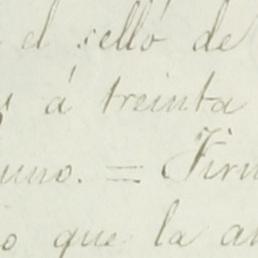 el selló de
á treinta
uno. = Firm
que la